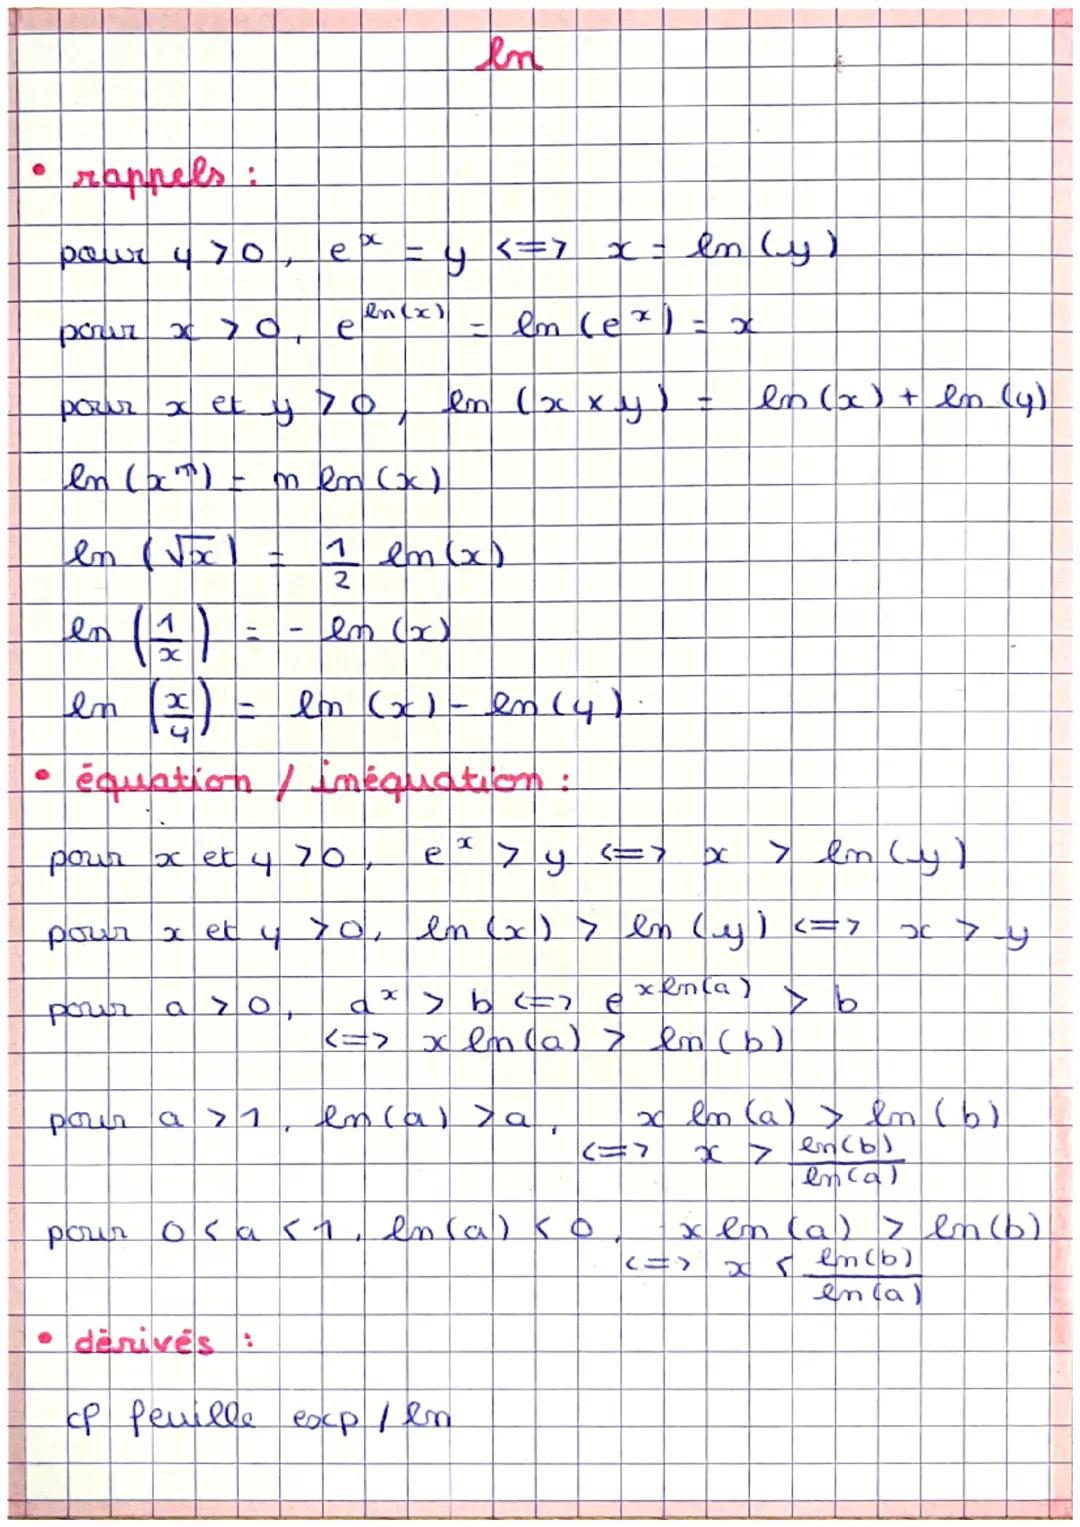 ln
• rappels :
pour y > 0, e^x = y <=> x = ln (y)
pour x > 0, e^ln(x) = ln (e^x) = x
pour x et y > 0, ln (x × y) = ln (x) + ln (y)
ln (x^n) = n ln (x)
ln (√x) = 1/2 ln (x)
ln (1/x) = - ln (x)
ln (x/y) = ln (x) - ln (y).
• équation / inéquation :
pour x et y > 0, e^x > y <=> x > ln (y)
pour x et y > 0, ln (x) > ln (y) <=> x > y
pour a > 0, a^x > b <=> e^x ln(a) > b
<=> x ln (a) > ln (b)
pour a > 1, ln (a) > a, x ln (a) > ln (b)
<=> x > ln(b)/ln(a)
pour 0 < a < 1, ln (a) < 0, x ln (a) > ln (b)
<=> x < ln(b)/ln(a)
• dérivés :
cf feuille exp / ln